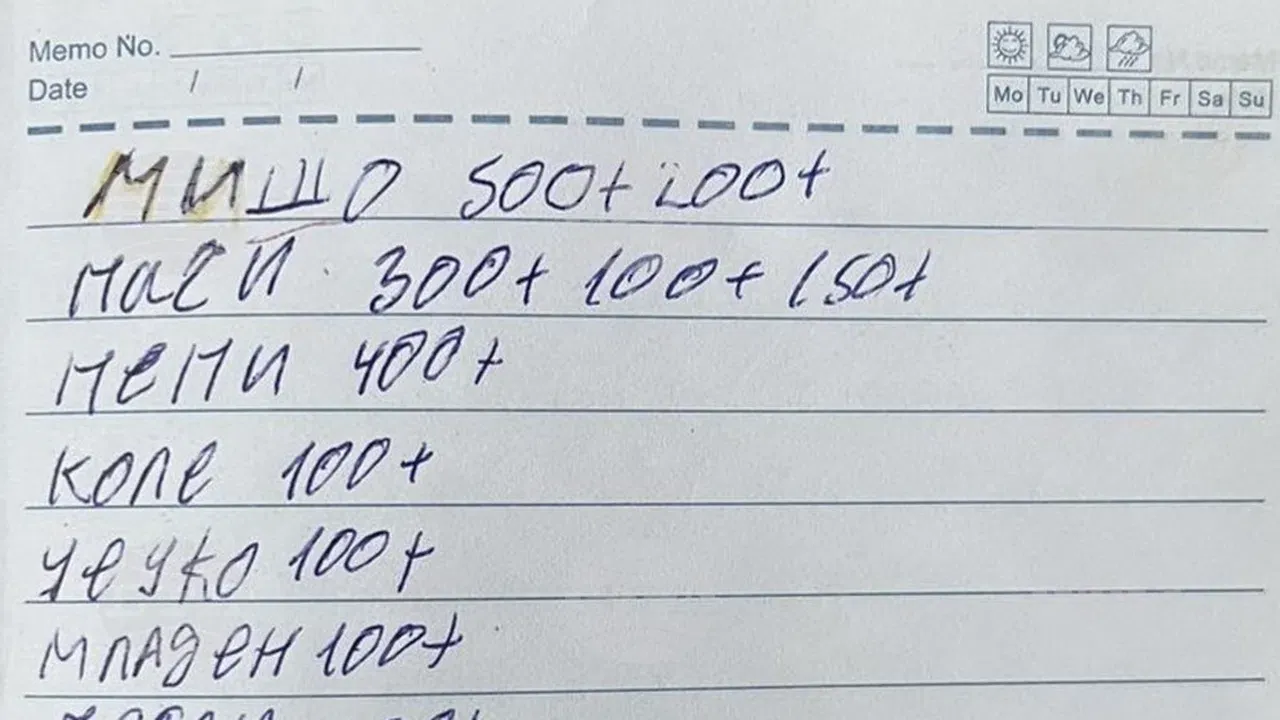 Memo No.
Date / /
Mo Tu We Th Fr Sa Su
МИШО 500+ 200+
НАСИ 300+ 100+ 150+
НЕНИ 400+
КОЛЕ 100+
ЧЕЧКО 100+
МЛАДЕН 100+